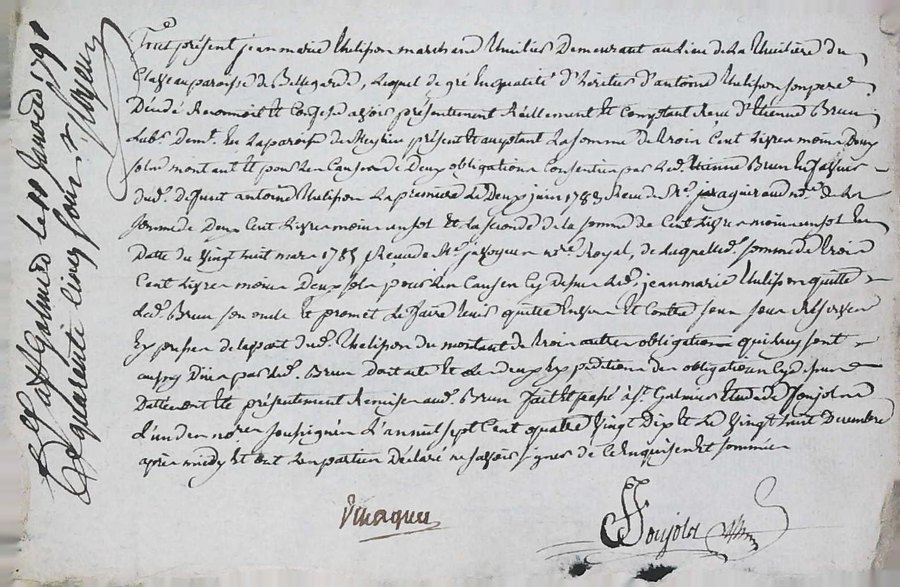 Fut présent jean marie Thelisson marchand Tuilier Demeurant au Lieu de La Tuilière du
Clozeau paroisse de Bellegarde, Lequel de gré En qualité d'héritier d'antoine Thelisson son pere
Décédé Reconnoit et Confesse avoir présentement Réellement Et Comptant Recu d'Etienne Brun
Lab.r Dem.t En La paroisse de présent Et acceptant La somme de trois Cent Livres moins Deux
sols montant et pour Les Causes de Deux obligations Consenties par Led. Etienne Brun En faveur
dud. Defunt antoine Thelisson La premiere Le Deux juin 1783 Recu de M.e not.re de La
somme de Deux Cent Livres moins un sol Et La seconde de la somme de Cent Livres moins un sol En
Datte du Vingt huit mars 1785 Recu de M.e not.re Royal, de Laquelle d. somme de trois
Cent Livres moins Deux sols pour Les Causes Cy dessus Led. jean marie Thelisson quitte
Led. Brun son oncle Et promet Le faire tenir quitte Envers Et Contre tous sous Reserve
Expresse de la part dud. Thelisson du montant de trois autres obligations qui luy sont
aussy Dues par Led. Brun Et Les deux Expeditions des obligations Cy dessus
Dattées ont été présentement Remises aud. Brun fait Et passé à S.t Galmier Etude de Poujolat
L'un des no.res soussignés L'an mil sept Cent quatre Vingt Dix et Le Vingt huit Decembre
après midy Et ont Les parties Déclaré ne savoir signer de Ce Enquises Et sommées
Poujolat
R. à S.t Galmier le janvier 1791
R. quarante